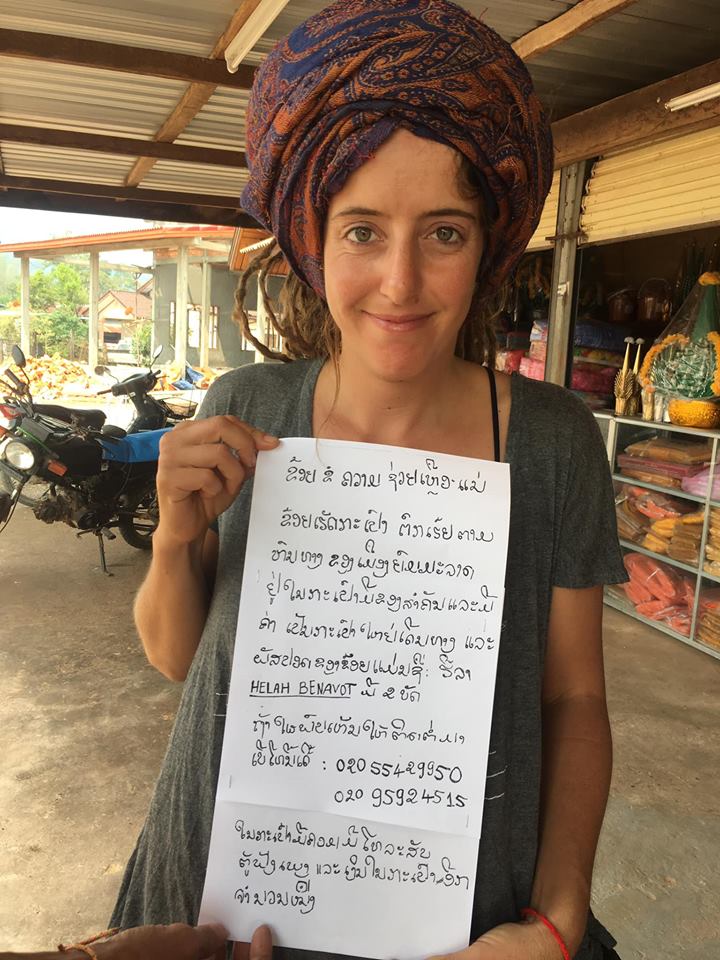 ຂ້ອຍ ຂໍ ຄວາມ ຊ່ວຍເຫຼືອ ແມ່
ຂ້ອຍເຮັດກະເປົາ ຕົກເຮ່ຍ ຕາມ
ຫົນທາງ ຂອງເມືອງ
ຢູ່ໃນກະເປົາມີຂອງສຳຄັນແລະມີ
ຄ່າ ເປັນກະເປົາ ໃຫຍ່ເດີນທາງ ແລະ
ພັສປອດຂອງຂ້ອຍແມ່ນຊື່: ຮີລາ
HELAH BENAVOT ມີ 2 ບັດ
ຖ້າ ໃຜພົບເຫັນໃຫ້ຕິດຕໍ່ມາ
ເບີໂທນີ້ເດີ້ : 020 55429950
020 95924515
ໃນກະເປົາມີຄອມ ມີ ໂທລະສັບ
ຕູ້ຟັງເພງ ແລະ ເງິນໃນກະເປົາອີກ
ຈຳນວນໜຶ່ງ